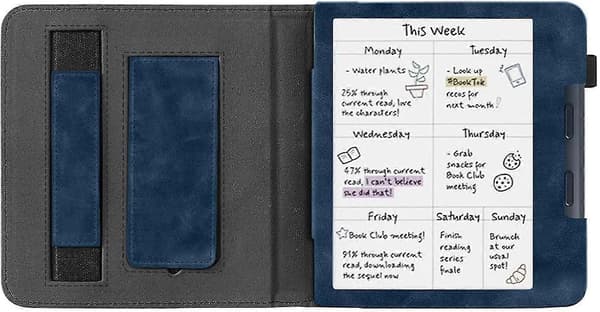 This Week
Monday
- Water plants
25% through
current read, love
the characters!
Tuesday
- Look up
#BookTok
recos for
next month!
Wednesday
47% through current
read, I can't believe
she did that!
Thursday
- Grab
snacks for
Book Club
meeting
Friday
Book Club meeting!
91% through current
read, downloading
the sequel now
Saturday
Finish
reading
series
finale
Sunday
Brunch
at our
usual
spot!